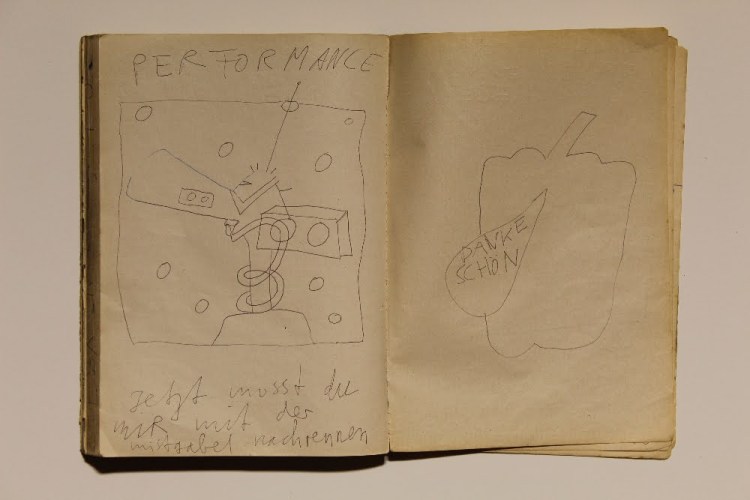 PERFORMANCE
Jetzt musst du
MIR mit der
mistgabel nachrennen
DANKE
SCHÖN